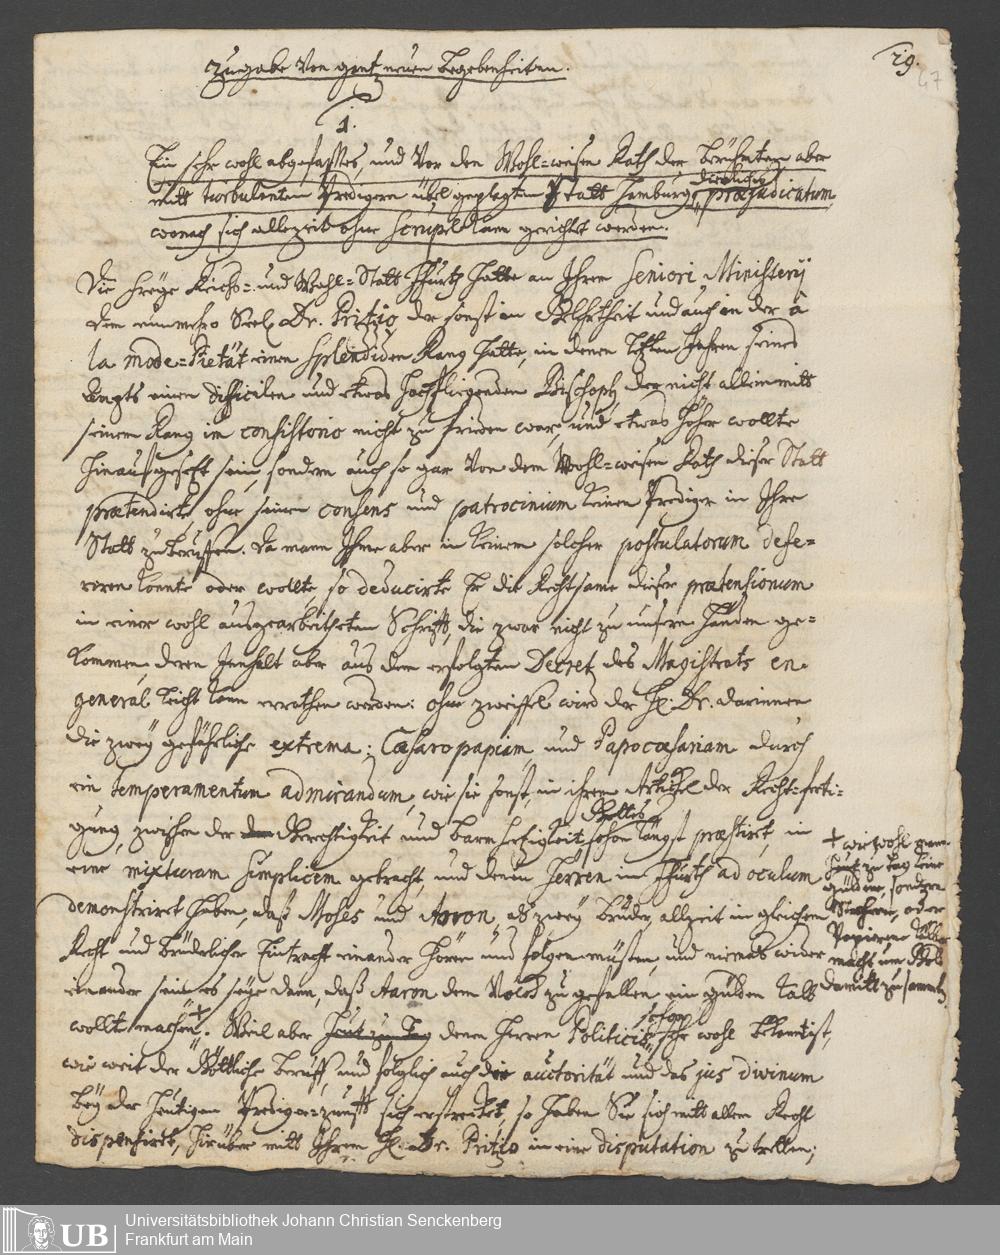 Zugabe von gantz neuen Begebenheiten.
29.
47
1.
Ein sehr wohl abgefasstes, und vor den Wohl-weisen Rath der berühmten aber
mitt turbulenten Predigern übel geplagten Statt Hamburg dienliches præjudicatum,
wonach sich allezeit ohne Scrupel kan gerichtet werden.
Die freye Reichs- und Wahl-Statt Ffurth hatte an Ihrem Seniori Ministerij
dem nunmehro Seel. Dr. Pritzio, der sonst in Gelehrtheit und auch in der à
la mode-Pietät einen splendiden Rang hatte, in denen letzten Jahren seines
einen difficilen und etwas hochfliegenden Bischoph, der nicht allein mitt
seinem Rang im consistorio nicht zu frieden war, und etwas höher wollte
hinauf gesetzt sein, sondern auch so gar von dem Wohl-weisen Rath dieser Statt
prætendirte, ohne seinen consens und patrocinium keinen Prediger in Ihre
Statt zu beruffen. Da mann Ihme aber in keinem solcher postulatorum defe-
riren konnte oder wollte, so deducirte Er die Rechtsame dieser prætensionum
in einer wohl ausgearbeitheten Schrifft, die zwar nicht zu unsern Händen ge-
kommen, deren Innhalt aber aus dem erfolgten Decret des Magistrats en
general leicht kan errathen werden: ohne zweiffel wird der H. Dr. darinnen
die zwey gefährliche extrema; Cæsaropapiam, und Papocæsariam durch
ein temperamentum admirandum, wie sie sonst, in ihrem Articul der Recht-ferti-
gung, zwischen der Gerechtigkeit und Barmhertzigkeit Gottes schon längst præstiret, in
eine mixturam simplicem gebracht, und denen Herren in Ffurth ad oculum
demonstriret haben, daß Moses und Aaron, als zwey Brüder, allzeit in gleichem
Recht und brüderlicher Eintracht einander hören und folgen müsten, und niemals wider
einander sein, es seye dann, daß Aaron dem Volck zu gefallen ein gülden Kalb
wollte machen. + Weil aber heut zu Tag denen Herren Politicis schon sehr wohl bekant ist,
wie weit der Göttliche beruff, und folglich auch die auctorität und das jus divinum
bey der heutigen Prediger-zunfft sich erstrecket, so haben Sie sich mitt allem Recht
dispensiret, hierüber mitt Ihrem H. Dr. Pritzio in eine disputation zu tretten;
+ wiewohl man
heut zu Tag keine
güldene, sondern
oder
Papierne Kälber
macht um Geld
damitt zu samlen.
UB
Universitätsbibliothek Johann Christian Senckenberg
Frankfurt am Main